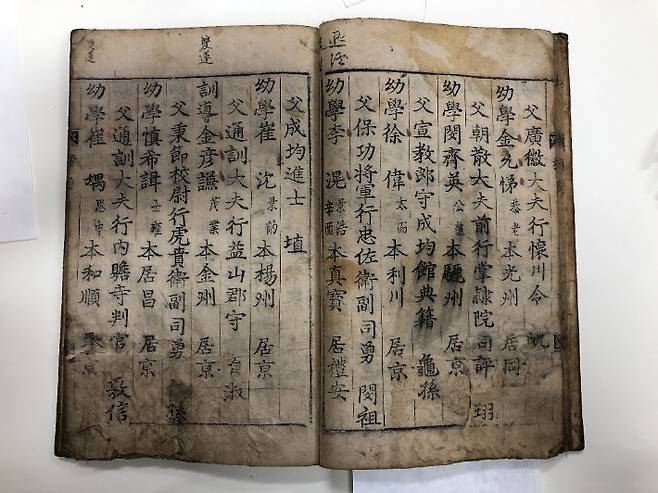 父廣微大夫行懷川令
幼學金九悌 本光州 居同
父朝散大夫前行掌隷院司評 珝
幼學閔齊英 本驪州 居京
父宣教郎守成均館典籍 龜孫
幼學徐偉 太而 本利川 居京
父保功將軍行忠佐衛副司勇 閔祖
退溪
幼學李滉 景浩 辛酉 本真寶 居禮安
父成均進士 埴
幼學崔沇 景勛 本楊州 居京
父通訓大夫行益山郡守 自淑
雙蓮
訓導金彦謙 茂業 本金州 居京
父秉節校尉行虎賁衛副司勇
幼學慎希諿 士雍 本居昌 居京
父通訓大夫行内贍寺判官 敬信
雙蓮
幼學崔堣 本和順 居京